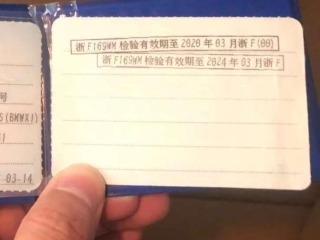 浙F169WM检验有效期至2020年03月浙F(00)
浙F169WM检验有效期至2024年03月浙F
号
S(BMWX1
1
03-14